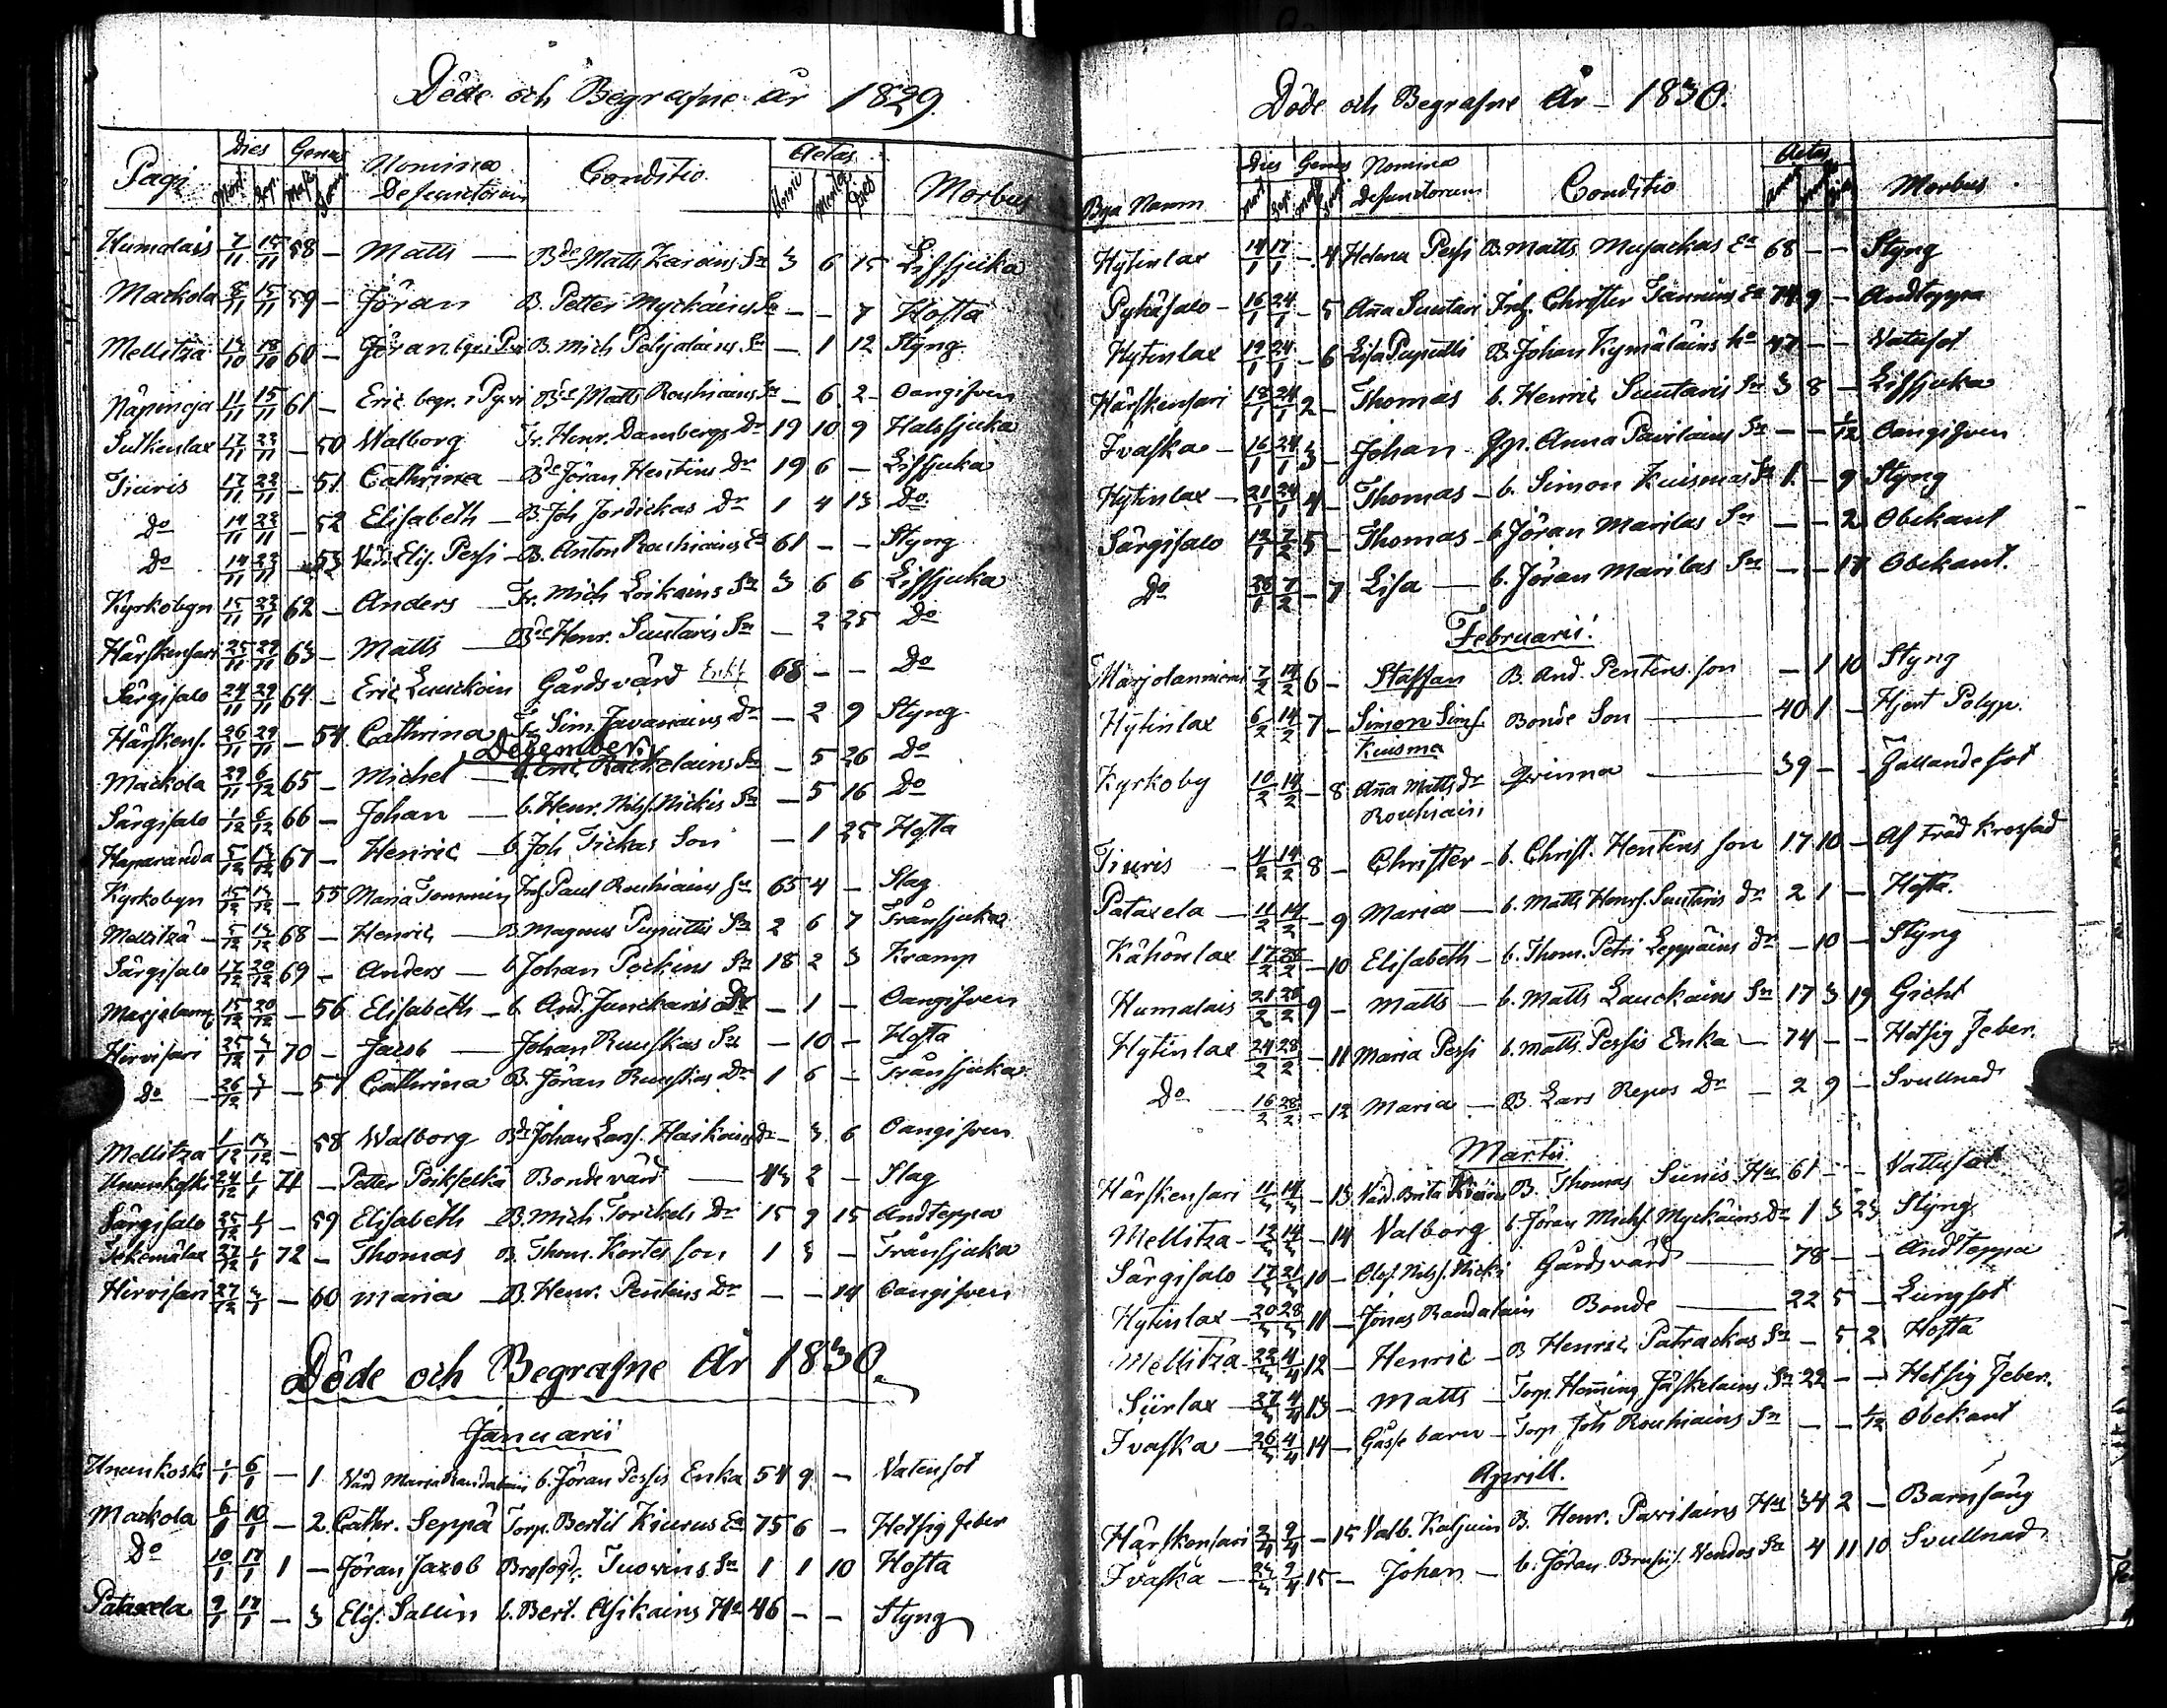 Döde och Begrafne år 1829.
Pagi Dies Genus Nomina Defunctorum Conditio Aetas Morbus
Mort. Sep. Mask. Foem. Anni Menses Dies
Humalais 7/11 15/11 58 - Matts - Bde Matts Karains Sn 3 6 15 Lifsjuka
Mackola 8/11 15/11 59 - Jöran B. Petter Myckäins Sn - - 7 Hosta
Mellitzä 18/10 60 - Jöran B. Mich Pohjolains Sn - 1 12 Styng
11/11 15/11 61 - Eric begr. i Bde Matts Rouhiains Sn - 6 2 Oangifven
Sutkenlax 17/11 22/11 - 50 Walborg Fr. Henr. Dambergs Dr 19 10 9 Halssjuka
Tiuris 17/11 22/11 - 51 Cathrina Bde Jöran Hentins Dr 19 6 - Lifsjuka
Do 14/11 22/11 - 52 Elisabeth - B. Joh Jordickas Dr 1 4 13 Do
Do 14/11 22/11 - 53 Elis. Pessi - B. Anton Rouhiains Ea 61 - - Styng
Kyrkobyn 15/11 22/11 62 - Anders - Fr. Mich Loikains Sn 3 6 6 Lifsjuka
Härskensari 25/11 29/11 63 - Matts - Bde Henr. Suutaris Sn - 2 25 Do
Särgisalo 24/11 29/11 64 - Eric Luuckoin Gårdsvärd Enkl 68 - - Do
Härskens. 26/11 29/11 - 54 Cathrina Sim. Javanains Dr - 2 9 Styng
December.
Mackola 29/11 6/12 65 - Michel - b. Eric Rackolains Sn - 5 26 Do
Särgisalo 1/12 6/12 66 - Johan - b. Henr. Nilss. Nickis Sn - 5 16 Do
Haparanda 5/12 13/12 67 - Henric - b. Joh Tickas Son - 1 25 Hosta
Kyrkobyn 13/12 - 55 Maria Tommin Inh. Paul Rouhiains 65 4 - Slag
Mellitzä - 5/12 13/12 68 - Henric - B. Magnus Puputtis Sn 2 6 7 Trånsjuka
Särgisalo 17/12 20/12 69 - Anders - b. Johan Pockins Sn 18 2 3 Kramp
15/12 20/12 - 56 Elisabeth - b. And. Junckaris Dr - 1 - Oangifven
Hirvisari 25/12 70 - Jacob - Johan Ruuskas Sn - 10 - Hosta
Do - 26/12 - 57 Cathrina B. Jöran Ruuskas Dr 1 6 - Trånsjuka
Mellitza 1/12 13/12 - 58 Walborg Bde Johan Larss. Haikains Dr - 3 6 Oangifven
Unnunkoski 24/12 1/1 71 - Petter Poikselkä Bondevärd - 43 2 - Slag
Särgisalo 25/12 1/1 - 59 Elisabeth - B. Mich. Torckels Dr 15 9 15 Andteppa
27/12 1/1 72 - Thomas B. Thom. Kortes son 1 3 - Trånsjuka
Hirvisari 27/12 - 60 Maria - B. Henr. Pentins Dr - - 14 Oangifven
Döde och Begrafne År 1830.
Januarii
Unnunkoski 1/1 6/1 - 1 Värd Maria b. Jöran Pessis Enka 54 9 - Vatensot
Mackola 6/1 10/1 - 2 Cathr. Seppä Torp. Bertil Kiurus Ea 75 6 - Hetsig feber
Do 10/1 17/1 1 - Jöran Jacob Tuovins Sn 1 1 10 Hosta
Pataxela 9/1 17/1 - 3 Elis. Sallin b. Bert. Asikains Ha 46 - - Styng
Döde och Begrafne År - 1830.
Bya Namn Dies Genus Nomina Defunctorum Conditio Aetas Morbus.
Hytinlax 14/1 17/1 - 4 Helena Pessi B. Matts Musackas Ea 68 - - Styng
Pyhäsalo - 16/1 24/1 - 5 Aña Suutari Inh. Christer Tannins Ea 74 9 - Andteppa
Hytinlax 19/1 24/1 - 6 Lisa Puputti B. Johan Kymäläins ha 47 - - Vatusot
Härskensari 18/1 24/1 2 - Thomas b. Henric Suutaris Sn 3 8 - Lifsjuka
Ivaska - 16/1 24/1 3 - Johan Anna Pavilains Sn - - 1/12 Oangifven
Hytinlax - 21/1 24/1 4 - Thomas - b. Simon Kuismas Sn 1 - 9 Styng
Särgisalo 7/2 5 - Thomas - b. Jöran Marilas Sn - - 2 Obekant
Do 28/1 7/2 - 7 Lisa - b. Jöran Marilas Sn - - 17 Obekant.
Februarii.
Marjolanniemi 7/2 14/2 6 - Staffan B. And. Pentins. son - 1 10 Styng
Hytinlax 6/2 14/2 7 - Simon Sims. Kuisma Bonde Son - 40 1 - Hjert Polyp.
Kyrkoby 10/2 14/2 - 8 Aña Matts dr Rouhiain Qvinna - 39 - - Fallandesot
Tiuris - 4/2 14/2 8 - Christer - b. Christ. Hentins son 17 10 - Af Träd Krossad
Pataxela - 11/2 14/2 - 9 Maria - b. Matts Henrs. Suutaris dr 2 1 - Hosta.
Kähönlax 17/2 28/2 - 10 Elisabeth - b. Thom. Petri Leppäins Dr - 10 - Styng
Humalais 21/2 28/2 9 - Matts - b. Matts Lauckains Sn 17 3 19 Gicht
Hytinlax 24/2 28/2 - 11 Maria Pessi b. Matts Pessis Enka - 74 - - Hetsig Feber.
Do 16/2 28/2 - 12 Maria - B. Lars Repos Dr - 2 9 - Svullnad
Martii
Härskensari 11/3 14/3 - 13 Värd. Brita B. Thomas Sunis Hu 61 - - Vattusot
Mellitza - 12/3 14/3 - 14 Valborg b. Jöran Michs. Myckäins Dr 1 3 23 Styng
Särgisalo 17/3 21/3 10 - Olof Nilss. Nicki Gårdsvärd - 78 - - Andteppa
Hytinlax - 20/3 28/3 11 - Jonas Randalain Bonde - 22 5 - Lungsot
Mellitza - 22/3 4/4 12 - Henric - B Henric Patrackas Sn - 5 2 Hosta
Siirlax - 27/3 4/4 13 - Matts - Torp. Homing Jäskelains Sn 22 - - Hetsig Feber.
Ivaska - 26/3 4/4 14 - Gåsse barn - Torp. Joh Rouhiains Sn - - 1/12 Obekant
Aprill.
Härskensari 2/4 9/4 - 15 Valb. B. Henr. Pavilains Hu 34 2 - Barnsäng
Ivaska - 9/4 15 - Johan - b. Jöran Vendos Sn 4 11 10 Svullnad